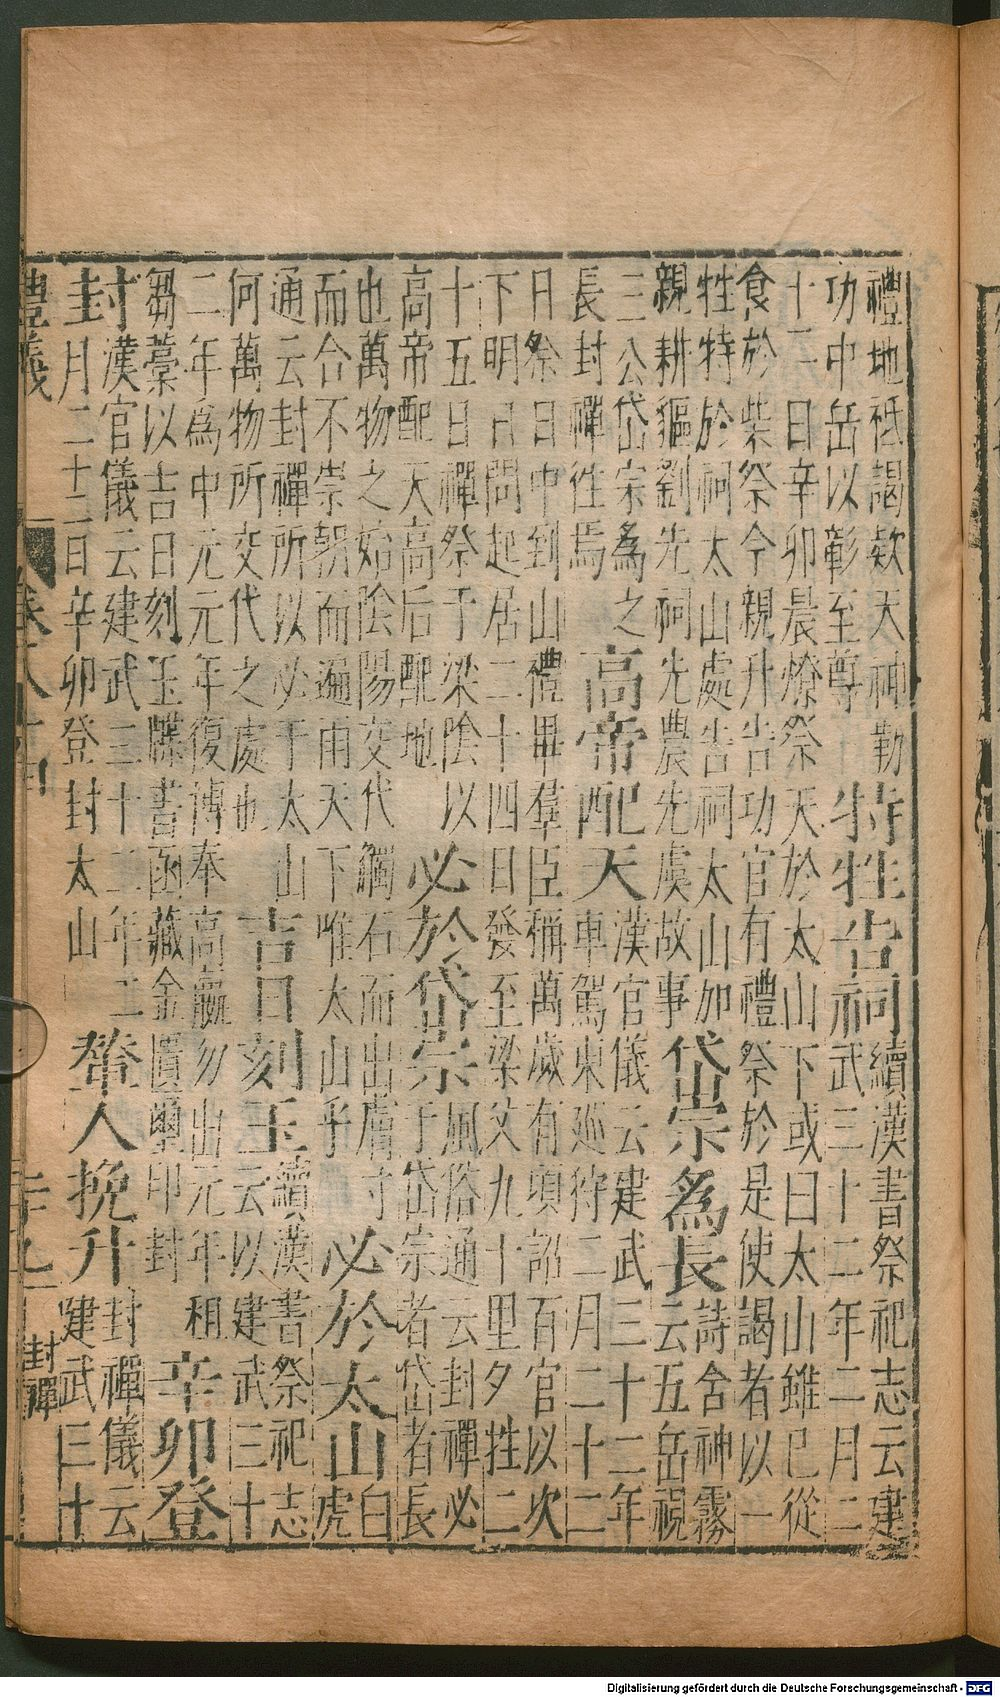 禮地祗謁欵天神勒
功中岳以彰至尊
特牲告祠
續漢書祭祀志云建
武三十二年二月二
十二日辛卯晨燎祭天於太山下或曰太山雖已從
食於柴祭今親升告功官有禮祭於是使謁者以一
牲特於祠太山處告祠太山如
親耕貙劉先祠先農先虞故事
岱宗為長
詩含神霧
云五岳視
三公岱宗為之
長封禪徃焉
高帝配天
漢官儀云建武三十二年
車駕東廵狩二月二十二
日祭日中到山禮畢羣臣稱萬歲有頃詔百官以次
下明日問起居二十四日發至梁父九十里夕牲二
十五日禪祭于梁陰以
高帝配天高后配地
必於岱宗
風俗通云封禪必
于岱宗者岱者長
也萬物之始陰陽交代觸石而出膚寸
而合不崇朝而遍雨天下唯太山乎
必於太山
白
虎
通云封禪所以必于太山
何萬物所交代之處也
吉日刻玉
續漢書祭祀志
云以建武三十
二年為中元元年復博奉高嬴勿出元年租
芻藁以吉日刻玉牒書函藏金匱璽印封
辛卯登
封
漢官儀云建武三十二年二
月二十二日辛卯登封太山
輦人挽升
封禪儀云
建武三十
封禪
Digitalisierung gefördert durch die Deutsche Forschungsgemeinschaft - DFG